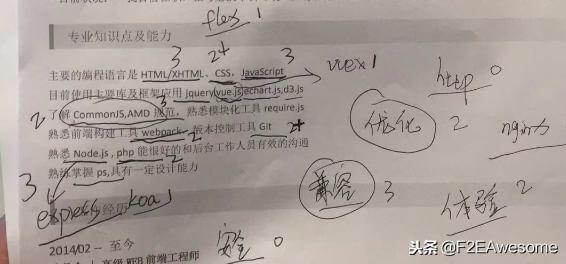 flex 1
专业知识点及能力
3 2+ 3
主要的编程语言是 HTML/XHTML、CSS、JavaScript
vuex 1
http 0
目前使用主要库及框架应用 jquery,vue.js,echart.js,d3.js
2 了解 CommonJS,AMD 规范，熟悉模块化工具 require.js
3
优化 2
nginx
熟悉前端构建工具 webpack，版本控制工具 Git
2 2+
熟悉 Node.js , php 能很好的和后台工作人员有效的沟通
2
熟练掌握 ps,具有一定设计能力
3
兼容 3
体验 2
express koa 1
经历
2014/02 -- 至今
安全 0
高级 WEB 前端工程师
头条 @F2EAwesome